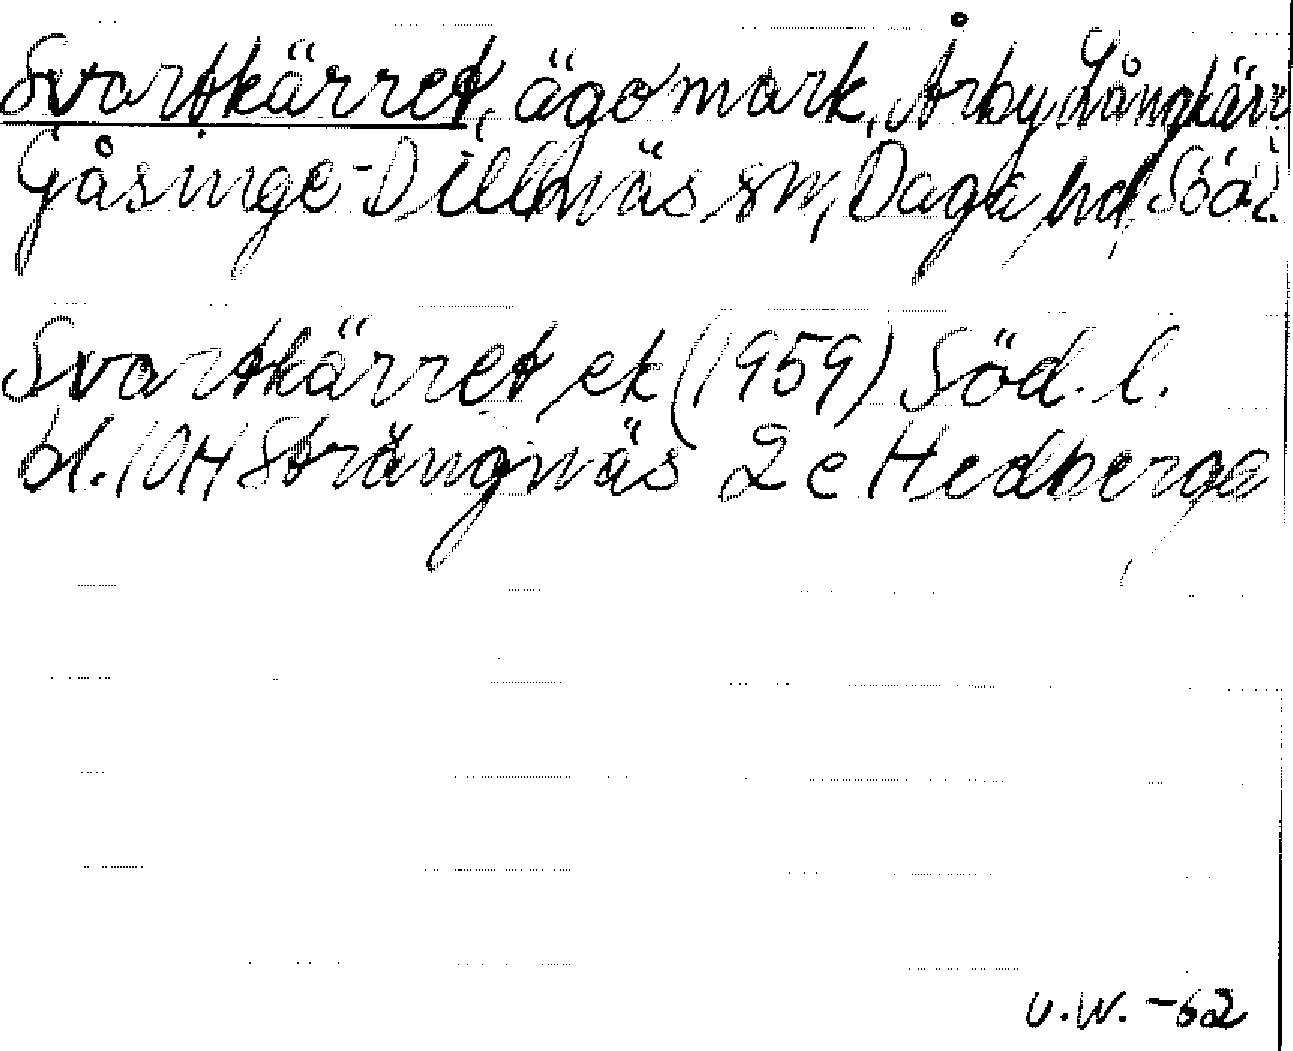 Svartkärret, ägomark, Årby Långkärr
Gåsinge-Dillnäs sn, Daga hd, Södl.
Svartkärret ek (1959) Söd. l.
bl. 10H Strängnäs 2 c Hedberga
U.W. -62